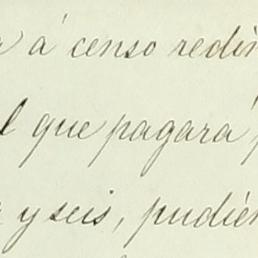 á censo redim
que pagará
y seis, pudién